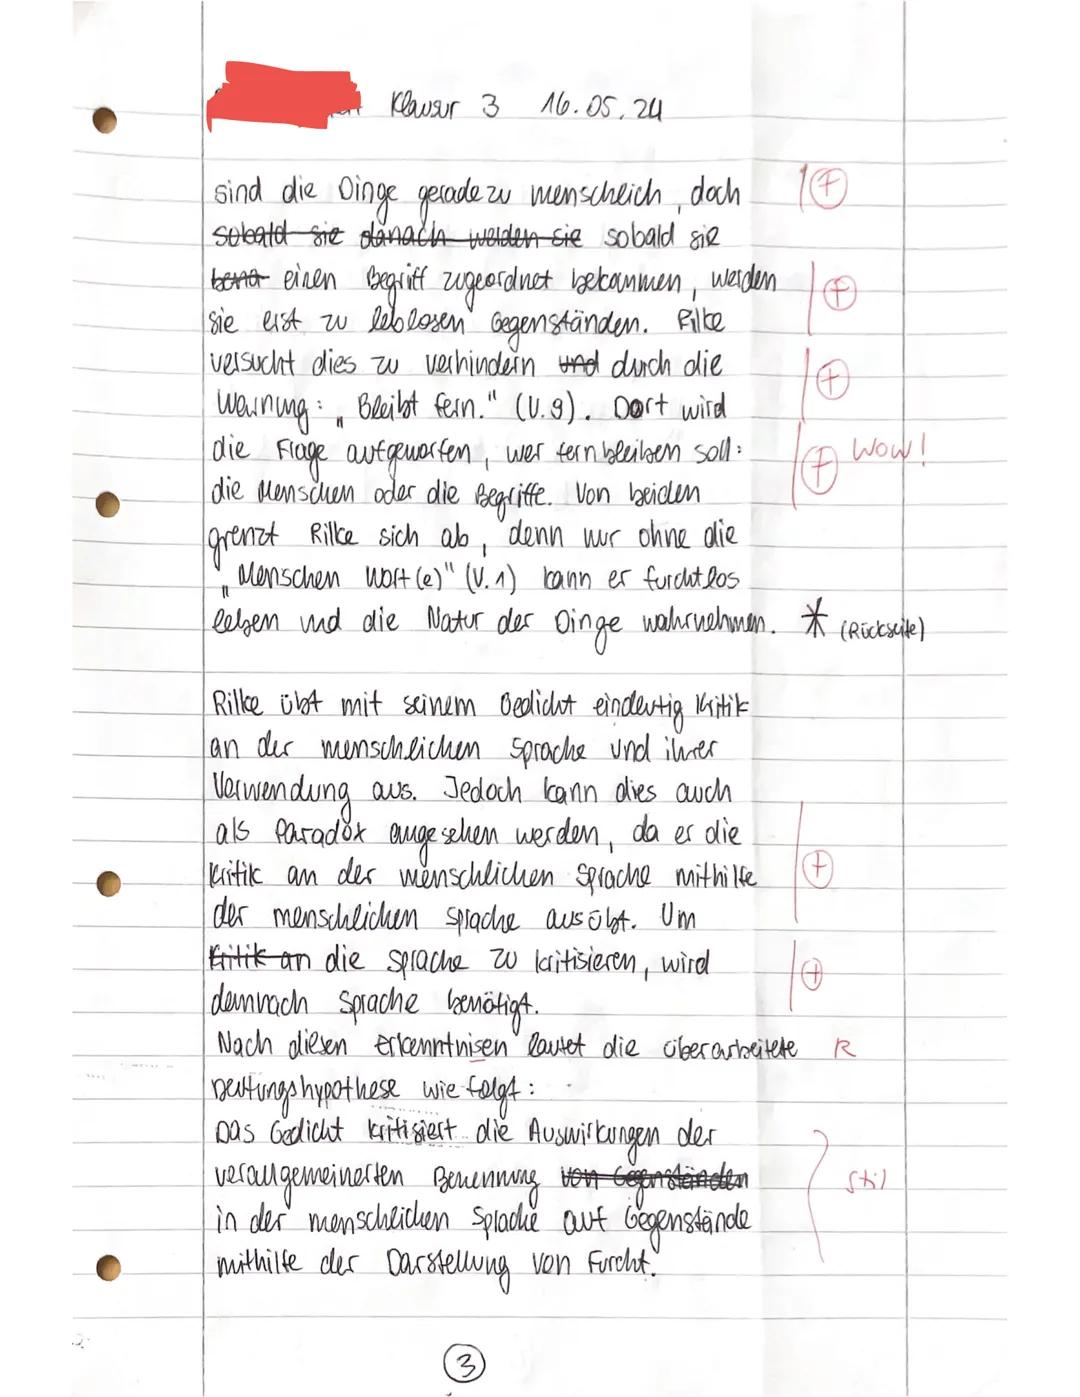 Klausur 3 16.05.24
sind die Dinge geradezu menschlich, doch
sobald sie danach werden sie sobald sie
einen Begriff zugeordnet bekommen, werden
sie erst zu leblosen Gegenständen. Rilke
versucht dies zu verhindern und durch die
Warnung: „Bleibt fern." (V.9). Dort wird
die Frage aufgeworfen, wer fernbleiben soll:
die Menschen oder die Begriffe. Von beiden
grenzt Rilke sich ab, denn nur ohne die
„Menschen Wort(e)" (V.1) kann er furchtlos
leben und die Natur der Dinge wahrnehmen. * (Rückseite)
Wow!
Rilke übt mit seinem Gedicht eindeutig Kritik
an der menschlichen Sprache und ihrer
Verwendung aus. Jedoch kann dies auch
als Paradox angesehen werden, da er die
Kritik an der menschlichen Sprache mithilfe
der menschlichen Sprache ausübt. Um
Kritik an die Sprache zu kritisieren, wird
demnach Sprache benötigt.
Nach diesen Erkenntnisen lautet die überarbeitete R
Deutungshypothese wie folgt:
Das Gedicht kritisiert die Auswirkungen der
verallgemeinerten Benennung von Gegenständen
in der menschlichen Sprache auf Gegenstände
mithilfe der Darstellung von Furcht.
Stil
3